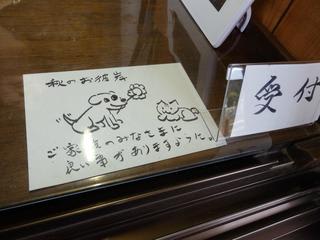 秋のお彼岸
ご家族のみなさまに
良い事がありますように
受付